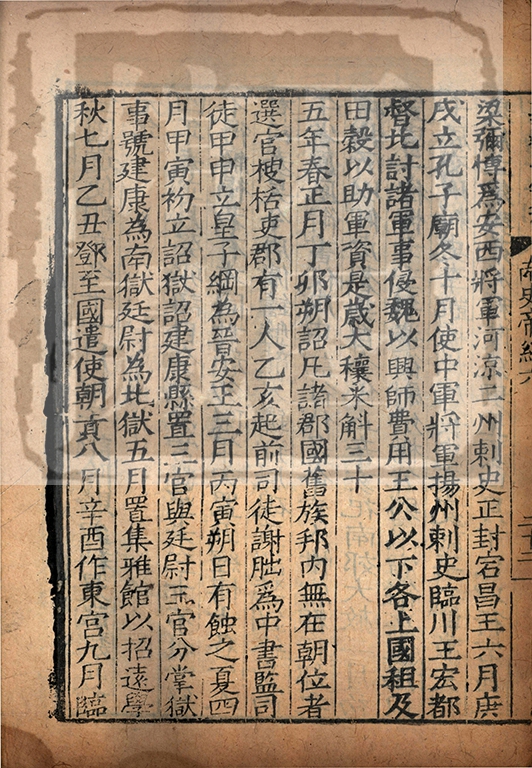 梁彌博爲安西將軍河凉二州刺史正封宕昌王六月庚
戌立孔子廟冬十月使中軍將軍揚州刺史臨川王宏都
督北討諸軍事侵魏以興師費用王公以下各上國租及
田穀以助軍資是歲大穰米斛三十
五年春正月丁卯朔詔凡諸郡國舊族邦内無在朝位者
選官搜括吏郡有一人乙亥起前司徒謝朏爲中書監司
徒甲申立皇子綱為晉安王三月丙寅朔日有蝕之夏四
月甲寅初立詔獄詔建康縣置三官與廷尉三官分掌獄
事號建康為南獄廷尉為北獄五月置集雅館以招遠學
秋七月乙丑鄧至國遣使朝貢八月辛酉作東宫九月臨